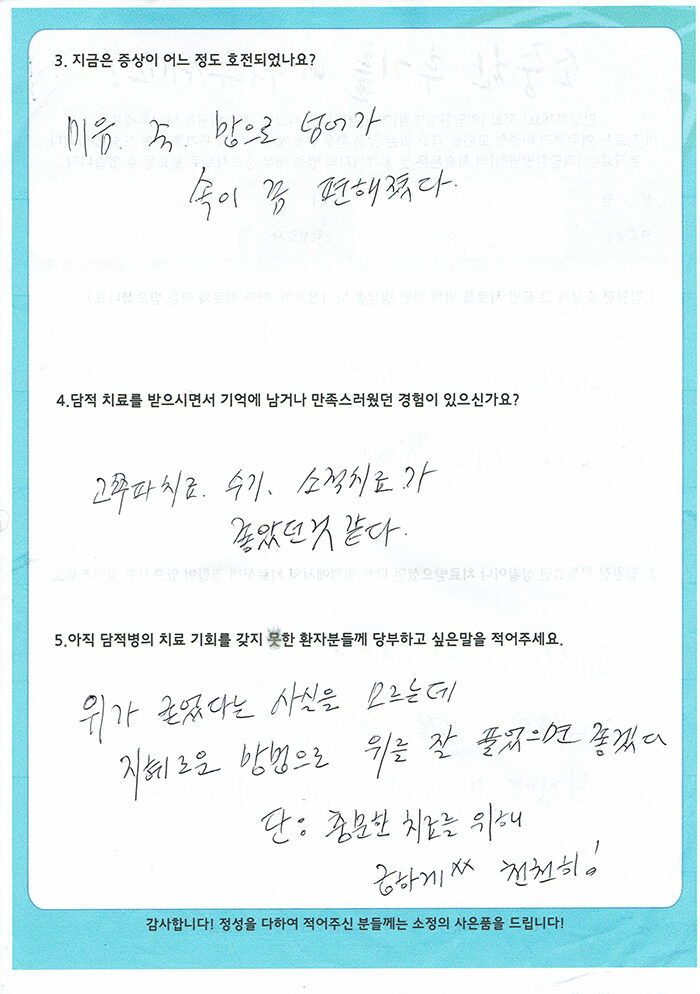 3. 지금은 증상이 어느 정도 호전되었나요?
미음 죽 밥으로 넘어가
속이 꼭 편해졌다.
4.담적 치료를 받으시면서 기억에 남거나 만족스러웠던 경험이 있으신가요?
고주파치료. 수기. 소적치료가
좋았던것 같다.
5.아직 담적병의 치료 기회를 갖지 못한 환자분들께 당부하고 싶은말을 적어주세요.
위가 굳었다는 사실을 모르는데
지혜로운 방법으로 위를 잘 풀었으면 좋겠다
단: 충분한 치료를 위해
급하게xx 천천히!
감사합니다! 정성을 다하여 적어주신 분들께는 소정의 사은품을 드립니다!